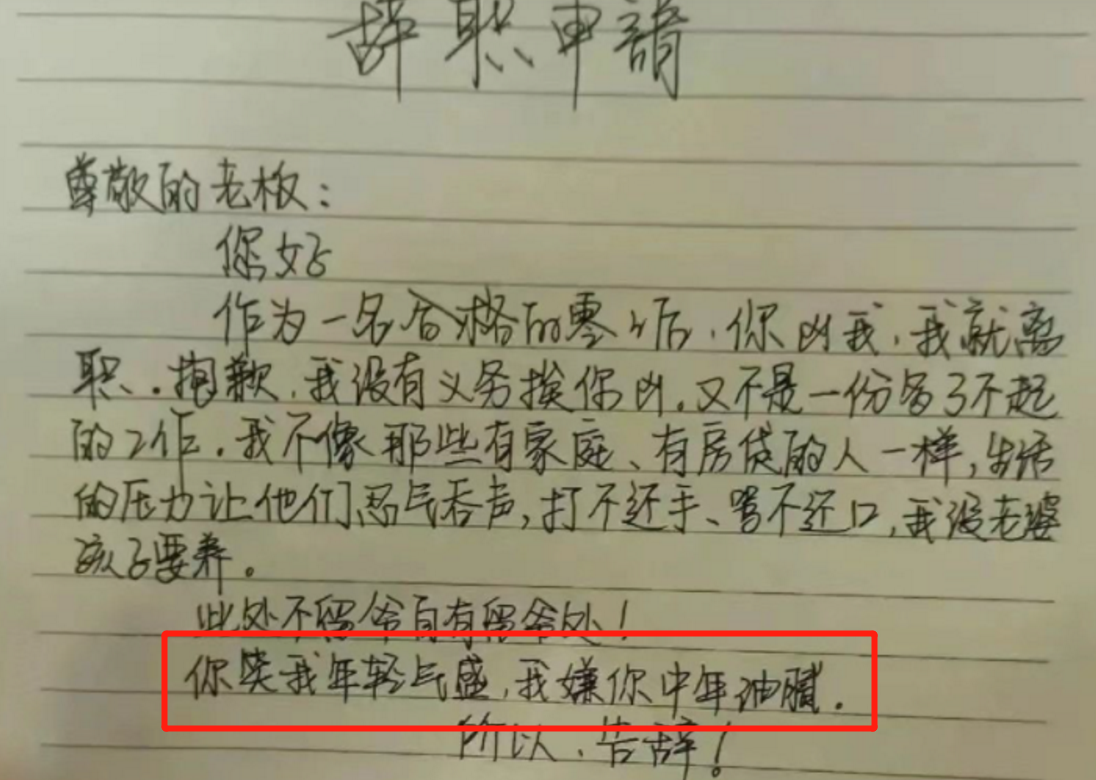 辞职申請
尊敬的老板：
您好
作为一名合格的零零后，你凶我，我就离
职。抱歉，我没有义务挨你凶。又不是一份多了不起
的工作。我不像那些有家庭、有房贷的人一样，生活
的压力让他们忍气吞声，打不还手、骂不还口，我没老婆
孩子要养。
此处不留爷自有留爷处！
你笑我年轻气盛，我嫌你中年油腻。
所以、告辞！